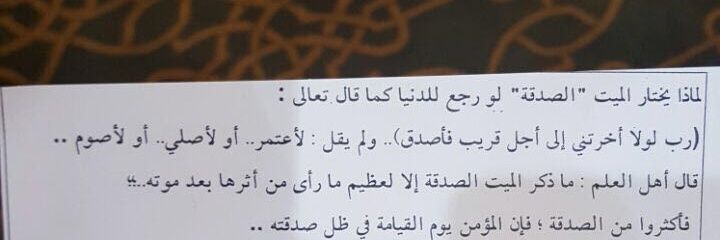 لماذا يختار الميت "الصدقة" لو رجع للدنيا كما قال تعالى :
(رب لولا أخرتني إلى أجل قريب فأصدق).. ولم يقل : لأعتمر.. أو لأصلي.. أو لأصوم ..
قال أهل العلم : ما ذكر الميت الصدقة إلا لعظيم ما رأى من أثرها بعد موته..!!
فأكثروا من الصدقة ؛ فإن المؤمن يوم القيامة في ظل صدقته ..